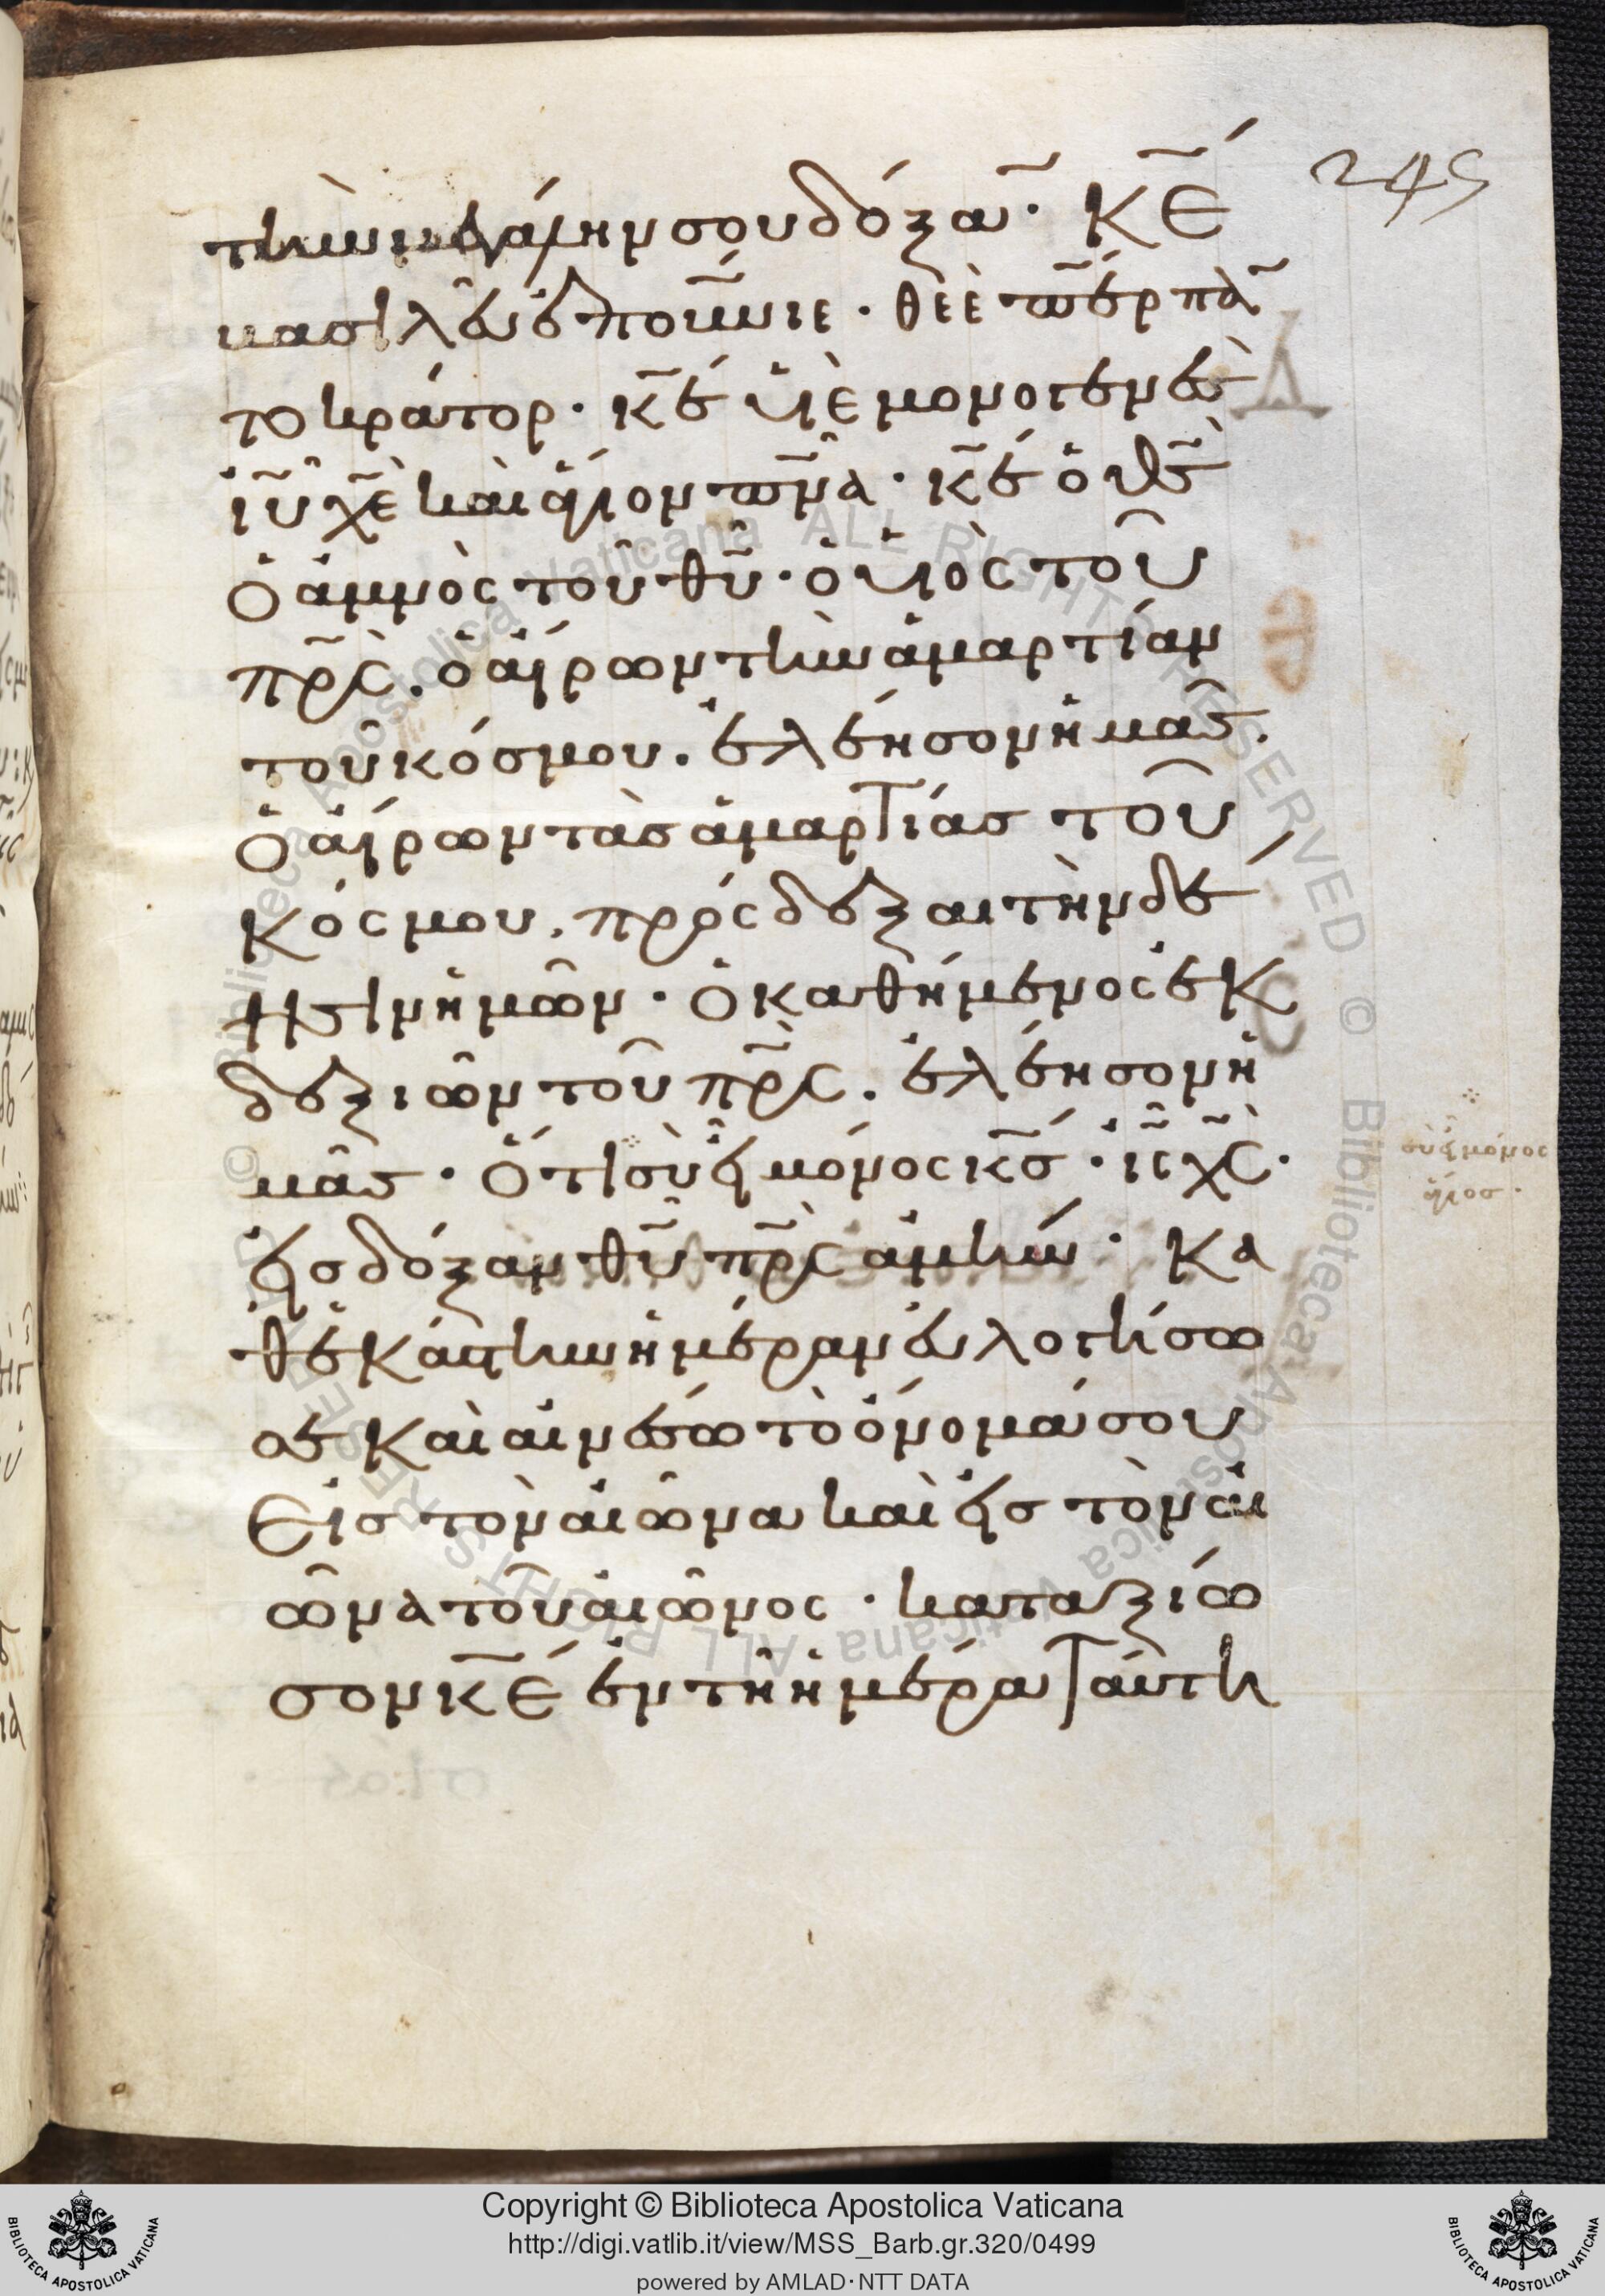 245
τὴν μεγάλην σου δόξαν· κ̅ε̅
βασιλεῦ ἐπουράνιε· θ̅ε̅ὲ π̅ε̅ρ παν
τοκράτορ· κ̅ε̅ υἱὲ μονογενὲς
ἰ̅υ̅ χ̅ε̅ καὶ ἅγιον π̅ν̅α̅· κ̅ε̅ ὁ θ̅ς̅
ὁ ἀμνὸς τοῦ θ̅υ̅· ὁ υἱὸς τοῦ
π̅ρ̅ς̅. ὁ αἴρων τὴν ἁμαρτίαν
τοῦ κόσμου. ἐλέησον ἡμᾶς.
ὁ αἴρων τὰς ἁμαρτίας τοῦ
κόσμου. πρόςδεξαι τὴν δέ
ησιν ἡμῶν· ὁ καθήμενος ἐκ
δεξιῶν τοῦ π̅ρ̅ς̅. ἐλέησον ἡ
μᾶς· ὅτι σὺ εἶ μόνος κ̅ς̅· ἰ̅ς̅ χ̅ς̅·
σὺ εἶ μόνος
ἅγιος·
εἰς δόξαν θ̅υ̅ π̅ρ̅ς̅ ἀμήν· Κα
θ' ἑκάστην ἡμέραν εὐλογήσω
σε καὶ αἰνέσω τὸ ὄνομά σου
Εἰς τὸν αἰῶνα καὶ εἰς τὸν αἰ
ῶνα τοῦ αἰῶνος· καταξίω
σον κ̅ε̅ ἐν τῇ ἡμέρα ταύτη
Copyright © Biblioteca Apostolica Vaticana
http://digi.vatlib.it/view/MSS_Barb.gr.320/0499
powered by AMLAD·NTT DATA
BIBLIOTECA APOSTOLICA VATICANA
BIBLIOTECA APOSTOLICA VATICANA
© Biblioteca Apostolica Vaticana ALL RIGHTS RESERVED
© Biblioteca Apostolica Vaticana ALL RIGHTS RESERVED